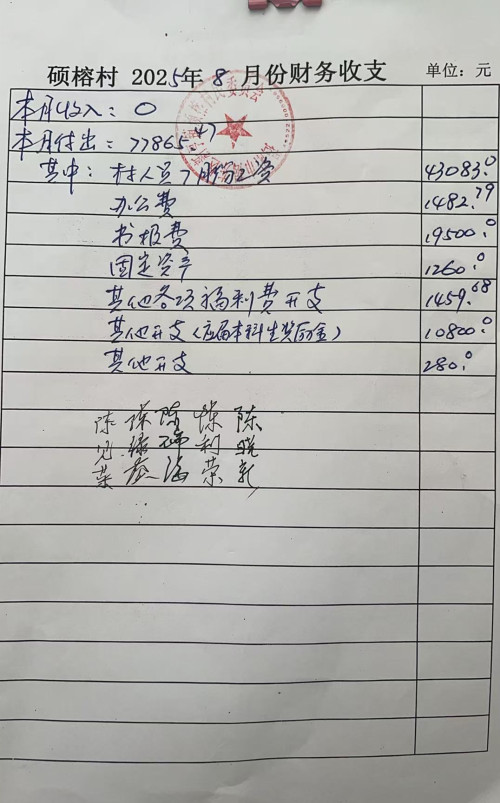 硕榕村 2025年 8 月份财务收支 单位：元
本月收入：0
本月付出：77865.47
其中：村人员7月份工资 43083.0
办公费 1482.79
书报费 19500.0
固定资产 1260.0
其他各项福利费开支 1459.68
其他开支（应届本科生奖励金） 10800.0
其他开支 280.0